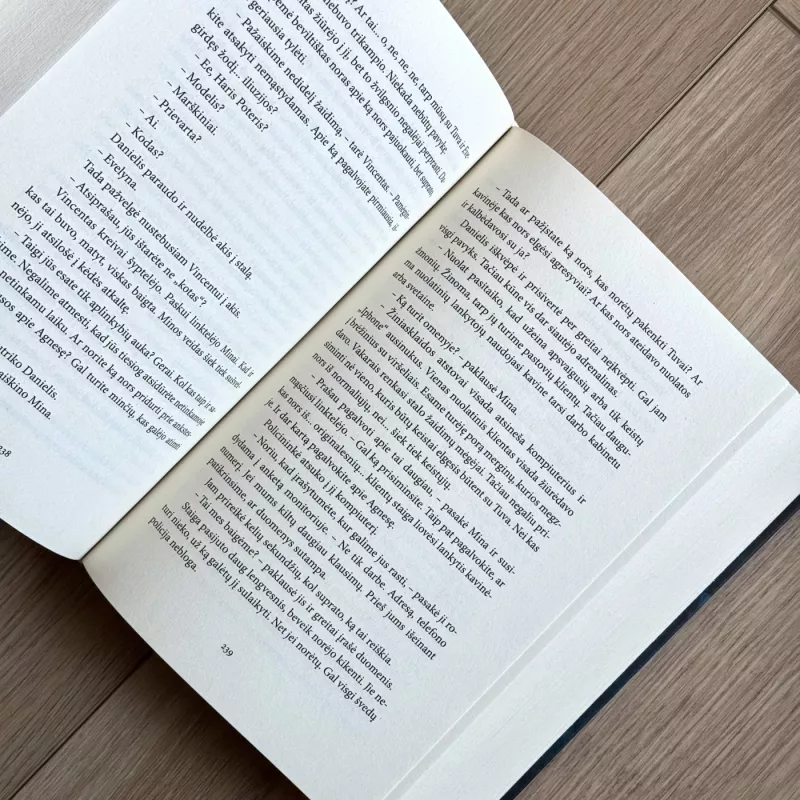 ? Ar tai... o, ne, ne, ne, tarp mūsų su Tuva ir Eve
nebuvo trikampio. Niekada nebūtų pavykę.
tas žiūrėjo į jį, bet to žvilgsnio negalėjai perprasti. Da
ėmė beviltiškas noras apie ką nors pajuokauti, bet suprato,
geriausia tylėti.
– Pažaiskime nedidelį žaidimą, – tarė Vincentas. –
kite atsakyti nemąstydamas. Apie ką pagalvojate pirmiausia,
girdęs žodį... iliuzijos?
– Ee, Haris Poteris?
– Modelis?
– Marškiniai.
– Prievarta?
– Ai.
– Kodas?
Danielis paraudo ir nudelbė akis į stalą.
– Evelyna.
Tada pažvelgė nustebusiam Vincentui į akis.
– Atsiprašau, jūs ištarėte ne „kotas“?
Vincentas kreivai šyptelėjo. Paskui linktelėjo Minai. Kad ir
kas tai buvo, matyt, viskas baigta. Minos veidas šiek tiek
nėjo, ji atsilošė į kėdės atkaltę.
– Taigi jūs esate tik aplinkybių auka? Gerai. Kol kas taip ir
ime. Negalime atmesti, kad jūs tiesiog atsidūrėte netinkamoje
netinkamu laiku. Ar norite ką nors pridurti prie
sos apie Agnesę? Gal turite minčių, kas galėjo
triko Danielis.
aiškino Mina.
238
– Tada ar pažįstate ką nors, kas norėtų pakenkti Tuvai? Ar
kavinėje kas nors elgėsi agresyviai? Ar kas nors ateidavo nuolatos
ir kalbėdavosi su ja?
Danielis iškvėpė ir prisivertė per greitai neįkvėpti. Gal jam
visgi pavyks. Tačiau kūne vis dar siautėjo adrenalinas.
– Nuolat pasitaiko, kad užeina apyraigiusių artą tik keistų
žmonių. Žinoma, tarp jų turime pastovių klientų. Tačiau daugu-
ma nuolatinių lankytojų naudojasi kavine tarsi darbo kabinetu
arba svetaine.
– Ką turit omenyje? – paklausė Mina.
– Žiniasklaidos atstovai visada atsineša kompiuterius ir
„Iphone“ ausinukus. Vienas nuolatinis klientas visada žiūrėdavo
į brėžinius su viršeliais. Esame turėję porą merginų, kurios megz-
davo. Vakarais renkasi stalo žaidimų mėgėjai. Tačiau negaliu pri-
siminti nė vieno, kuris būtų keistai elgęsis būtent su Tuva. Nei kas
nors iš normaliųjų, nei... šiek tiek keistujų.
– Prašau pagalvoti apie tai daugiau, – pasakė Mina ir susi-
mąsčiusi linktelėjo. – Gal ką prisiminsite. Taip pat pagalvokite, ar
kas nors iš... originalesnių... klientų staiga liovėsi lankytis kavinė-
je. Ir dar kartą pagalvokite apie Agnesę.
Policininkė atsuko į jį kompiuterį.
– Noriu, kad įrašytumėte, kur galime jus rasti – pasakė ji ro-
dydama į anketą monitoriuje. – Ne tik darbe. Adresą, telefono
numerį, jei mums kiltų daugiau klausimų. Prieš jums išeinant
patikrinsime, ar duomenys sutampa.
Jam prireikė kelių sekundžių, kol suprato, ką tai reiškia.
– Tai mes baigėme? – paklausė jis ir greitai įrašė duomenis.
Staiga pasijuto daug lengvesnis, beveik norėjo kikenti. Jie ne-
turi nieko, už ką galėtų jį sulaikyti. Net jei norėtų. Gal visgi švedų
policija nebloga.
239